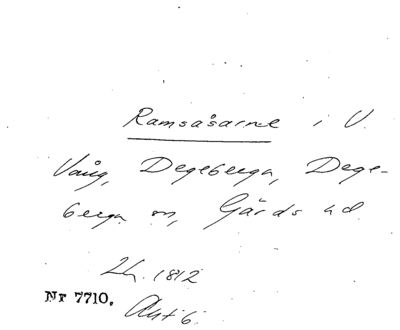 Ramsåsarne i V.
Vång, Degeberga, Dege-
berga sn, Gärds hd
Lh. 1812
Nr 7710. Akt 6.